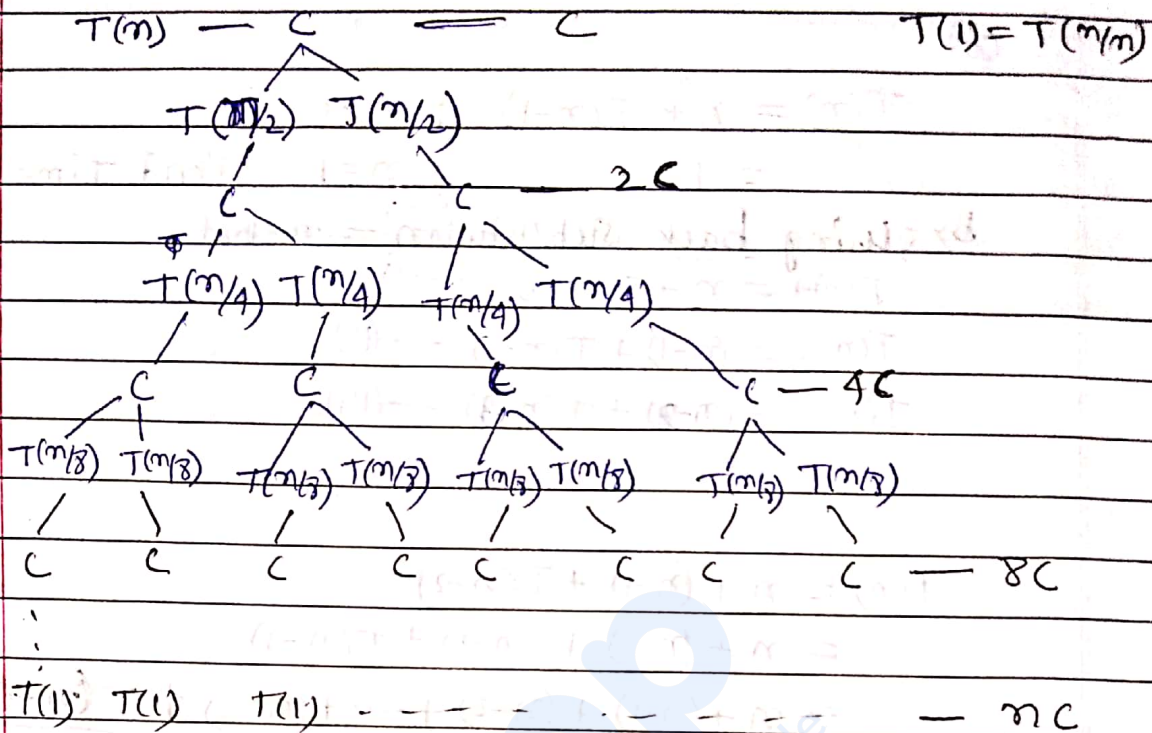 T(n) — C = C T(1) = T(n/n)
T(n/2) T(n/2)
C C — 2C
T(n/4) T(n/4) T(n/4) T(n/4)
C C C C — 4C
T(n/8) T(n/8) T(n/8) T(n/8) T(n/8) T(n/8) T(n/8) T(n/8)
C C C C C C C C — 8C
T(1) T(1) T(1) - - - - - - - - - - — nC